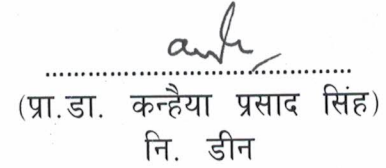 (प्रा.डा. कन्हैया प्रसाद सिंह)
नि. डीन